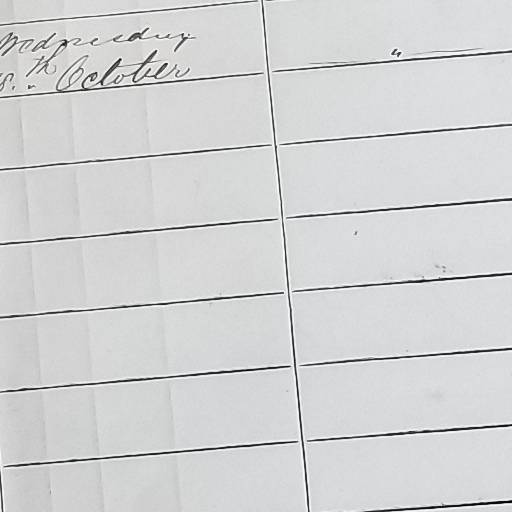 Wednesday "
8.th October